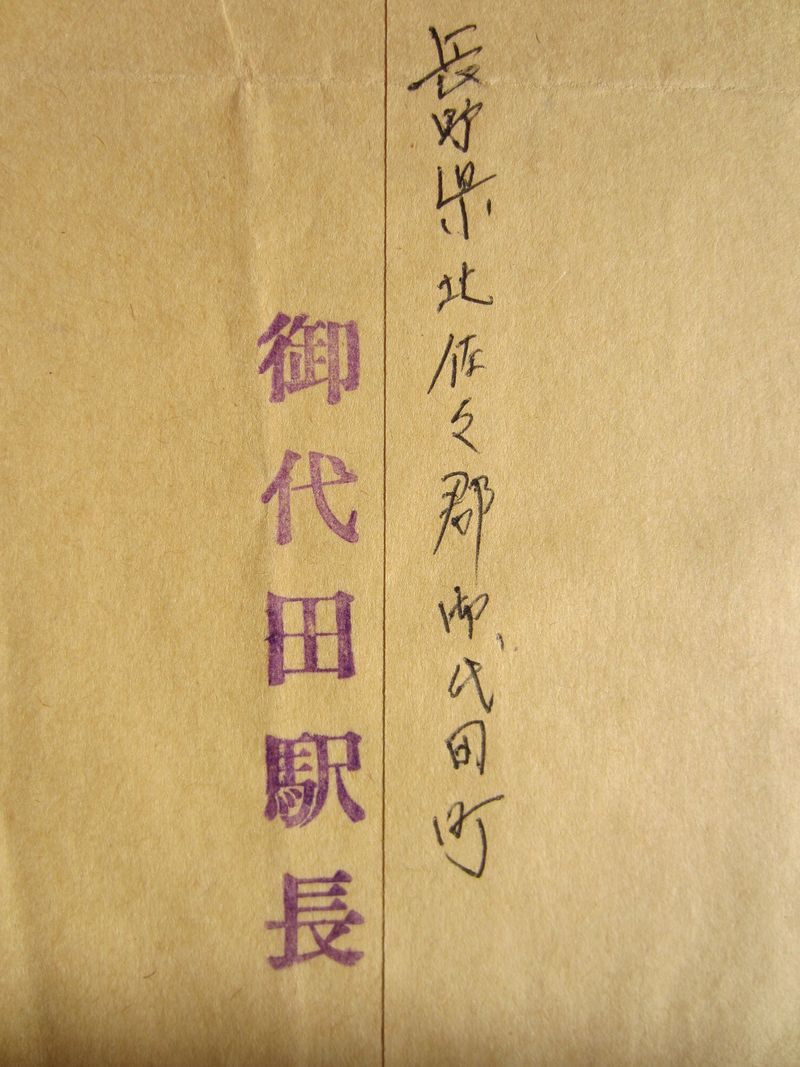 長野県北佐久郡御代田町
御代田駅長